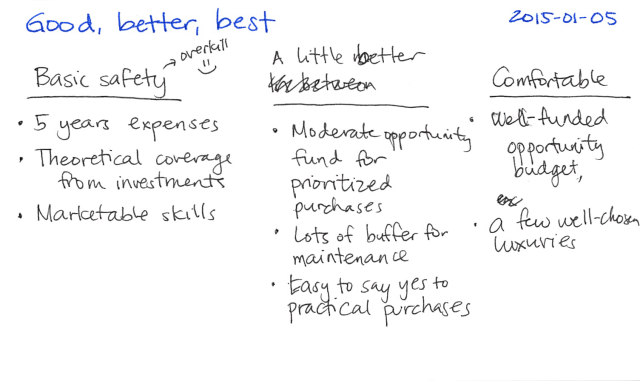 Good, better, best
2015-01-05
Basic safety → overkill
• 5 years expenses
• Theoretical coverage
from investments
• Marketable skills
A little better
• Moderate opportunity
fund for
prioritized
purchases
• Lots of buffer for
maintenance
• Easy to say yes to
practical purchases
Comfortable
• well-funded
opportunity
budget,
• a few well-chosen
luxuries